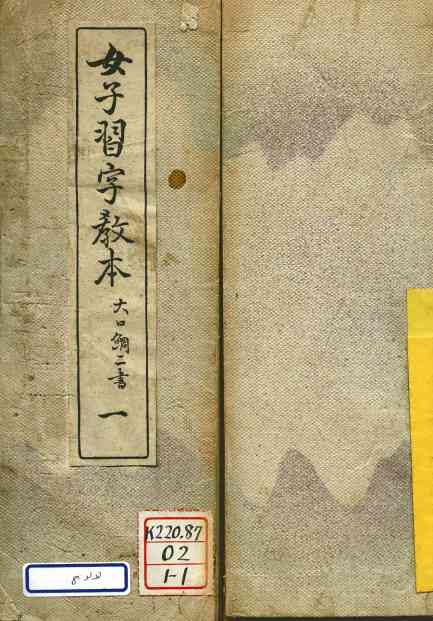 女子習字教本
大口鯛二書
一
K220.87
O2
1-1